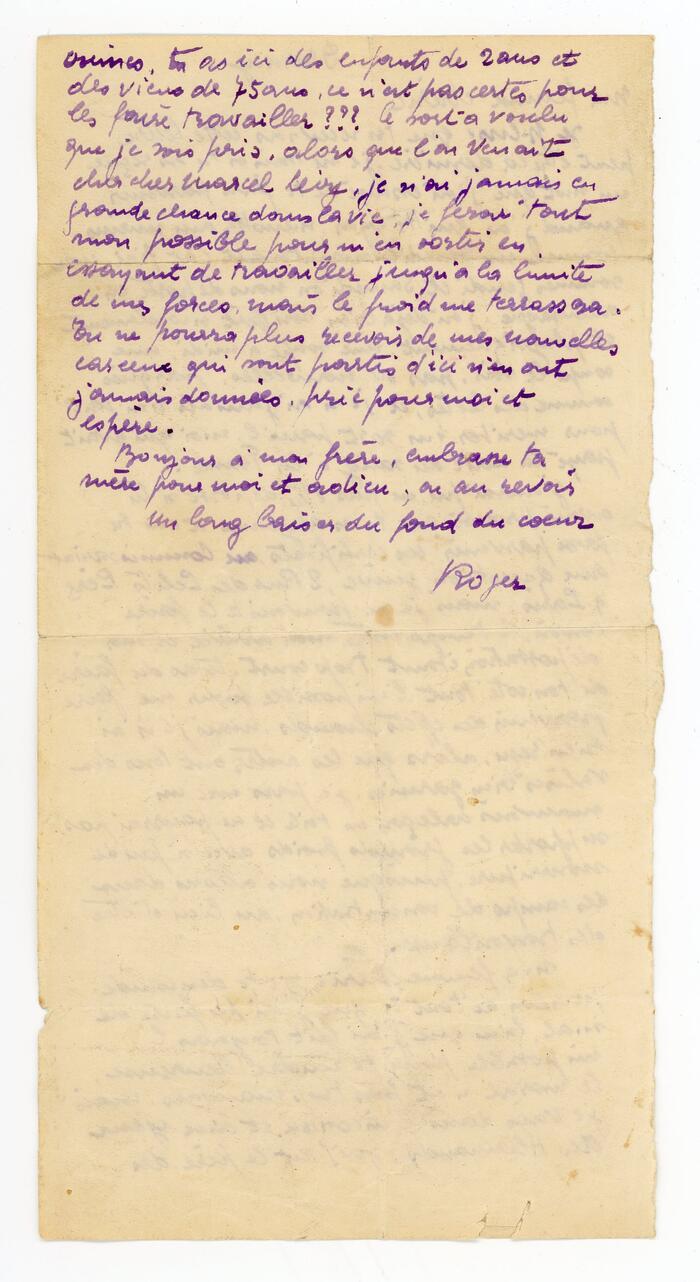 usines, tu as ici des enfants de 2 ans et
des vieux de 75 ans, ce n'est pas certes pour
les faire travailler ??? le sort a voulu
que je sois pris, alors que l'on venait
chercher Marcel Leiz, je n'ai jamais eu
grande chance dans la vie, je ferai tout
mon possible pour m'en sortir en
essayant de travailler jusqu'à la limite
de mes forces, mais le froid me terrassera.
Tu ne pourra plus recevoir de mes nouvelles
car ceux qui sont partis d'ici n'en ont
jamais données. prie pour moi et
espère.
Bonjour à mon frère, embrasse ta
mère pour moi et adieu, ou au revoir
Un long baiser du fond du coeur
Roger